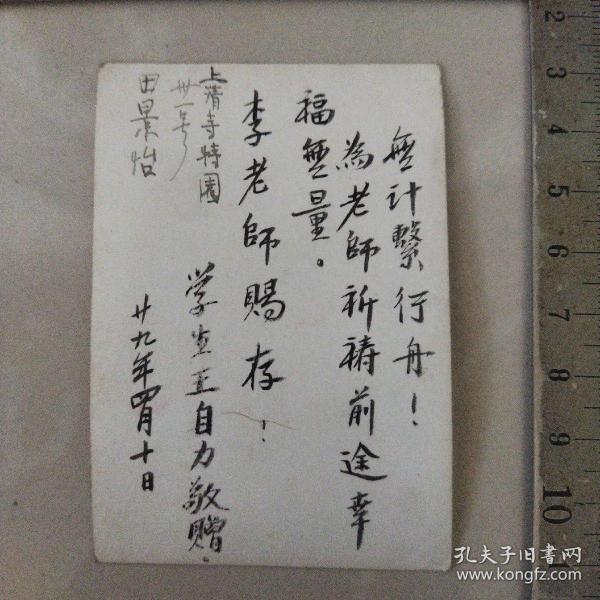 無計繫行舟！
為老師祈禱前途幸
福無量。
李老師賜存！
学生王自力敬贈。
廿九年四月十日
上清寺特園
卅一号
田景怡
2
3
4
5
6
7
8
9
10
孔夫子旧书网
www.kongfz.com